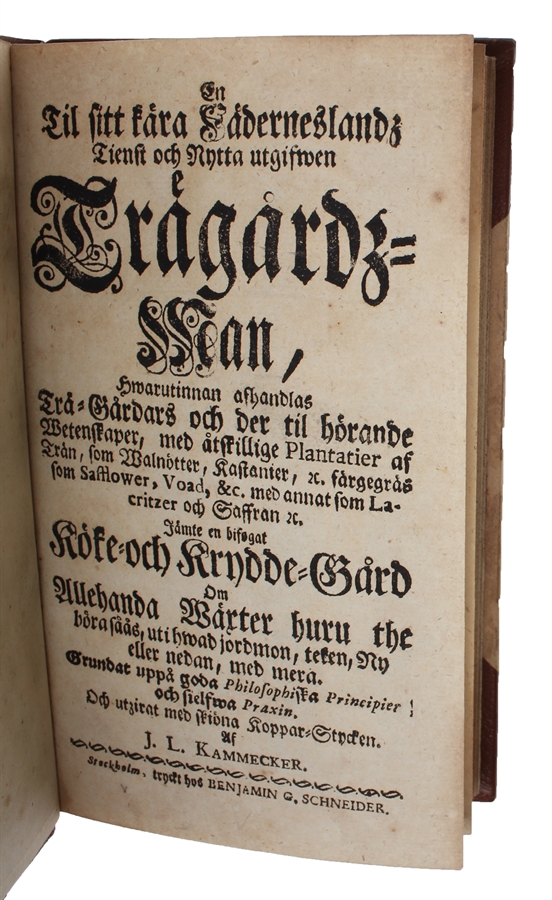 En
Til sitt kära Fäderneslandz
Tienst och Nytta utgifwen
Trägårdz-
Man,
Hwarutinnan afhandlas
Trä-Gårdars och der til hörande
Wetenskaper, med åtskillige Plantatier af
Trän, som Walnötter, Kastanier, ꝛc. färgegräs
som Safflower, Voad, &c. med annat som La-
critzer och Saffran ꝛc.
Jämte en bifogat
Köke-och Krydde-Gård
Om
Allehanda Wäxter huru the
böra såås, uti hwad jordmon, teken, Ny
eller nedan, med mera.
Grundat uppå goda Philosophiska Principier
och sielfwa Praxin.
Och utzirat med skiöna Koppar-Stycken.
Af
J. L. KAMMECKER.
Stockholm, tryckt hos BENJAMIN G. SCHNEIDER.